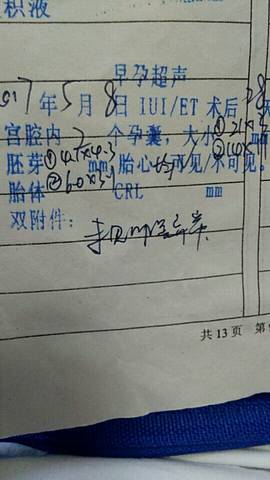 积液
早孕超声
17年5月8日 IUI/ET 术后28
宫腔内2个孕囊，大小①21× mm
胚芽① mm，胎心均可见/不可见。
胎体② CRL mm
双附件：
未见明显异常
共13页 第